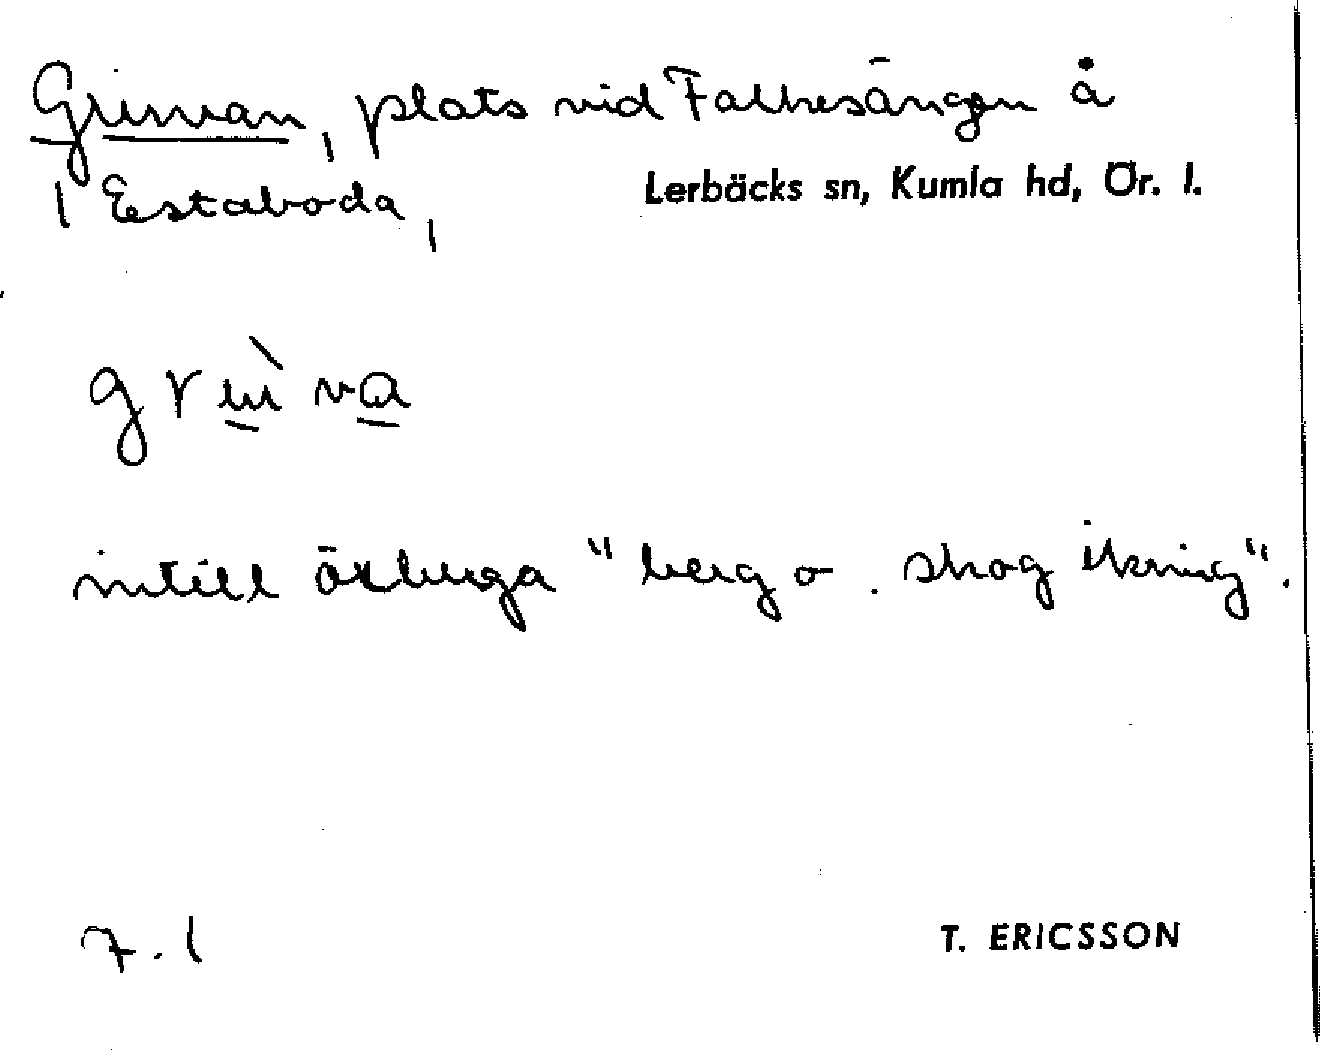 Gruvan, plats vid Falkesängen å
Estaboda, Lerbäcks sn, Kumla hd, Ör. l.
intill "berg o. skog ikring".
7.1 T. ERICSSON